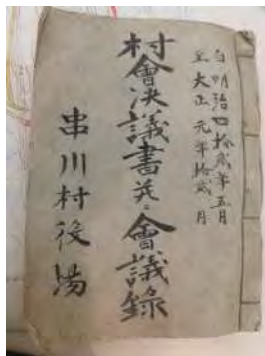 自明治四拾弐年五月
至大正元年拾弐月
村會决議書並ニ會議錄
串川村役場